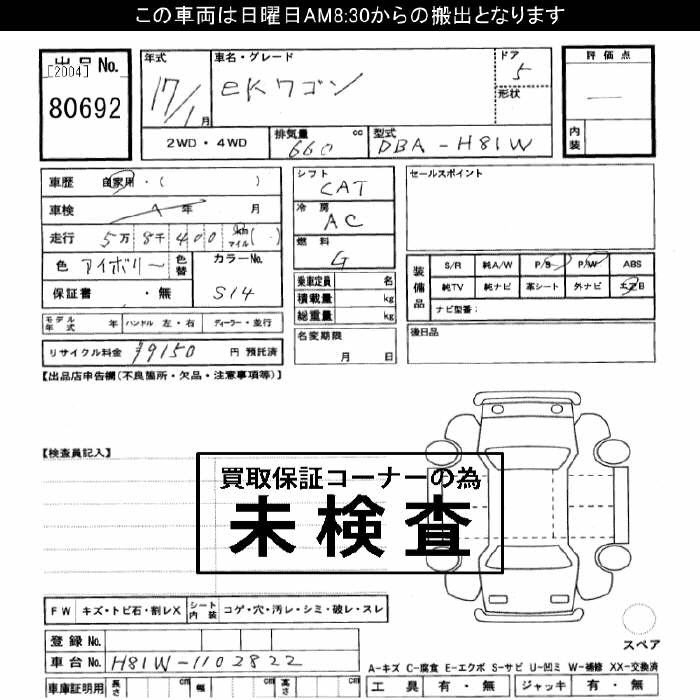 この車両は日曜日AM8:30からの搬出となります
出品 No.
[2004]
80692
年式
17/1月
車名・グレード
eKワゴン
ドア
5
形状
評価点
―
内装
2WD・4WD
排気量 cc
660
型式
DBA-H81W
車歴 自家用・( )
車検 年 月
走行 5万 8千 400 km マイル ( )
色 アイボリー 色替
カラーNo.
S14
保証書 ・無
シフト
CAT
冷房
AC
燃料
G
乗車定員 名
積載量 kg
総重量 kg
名変期限
月 日
セールスポイント
装備品
S/R 純A/W P/S P/W ABS
純TV 純ナビ 革シート 外ナビ エアB
ナビ型番:
後日品
モデル年式 年 ハンドル 左・右 ディーラー・並行
リサイクル料金 ¥9150 円 預託済
【出品店申告欄(不良箇所・欠品・注意事項等)】
【検査員記入】
買取保証コーナーの為
未検査
FW キズ・トビ石・割レX シート内装 コゲ・穴・汚レ・シミ・破レ・スレ
登録 No.
車台 No. H81W-1102822
車庫証明用 長さ cm 幅 cm 高さ cm
スペア
A-キズ C-腐食 E-エクボ S-サビ U-凹ミ W-補修 XX-交換済
工具 有・無 ジャッキ 有・無